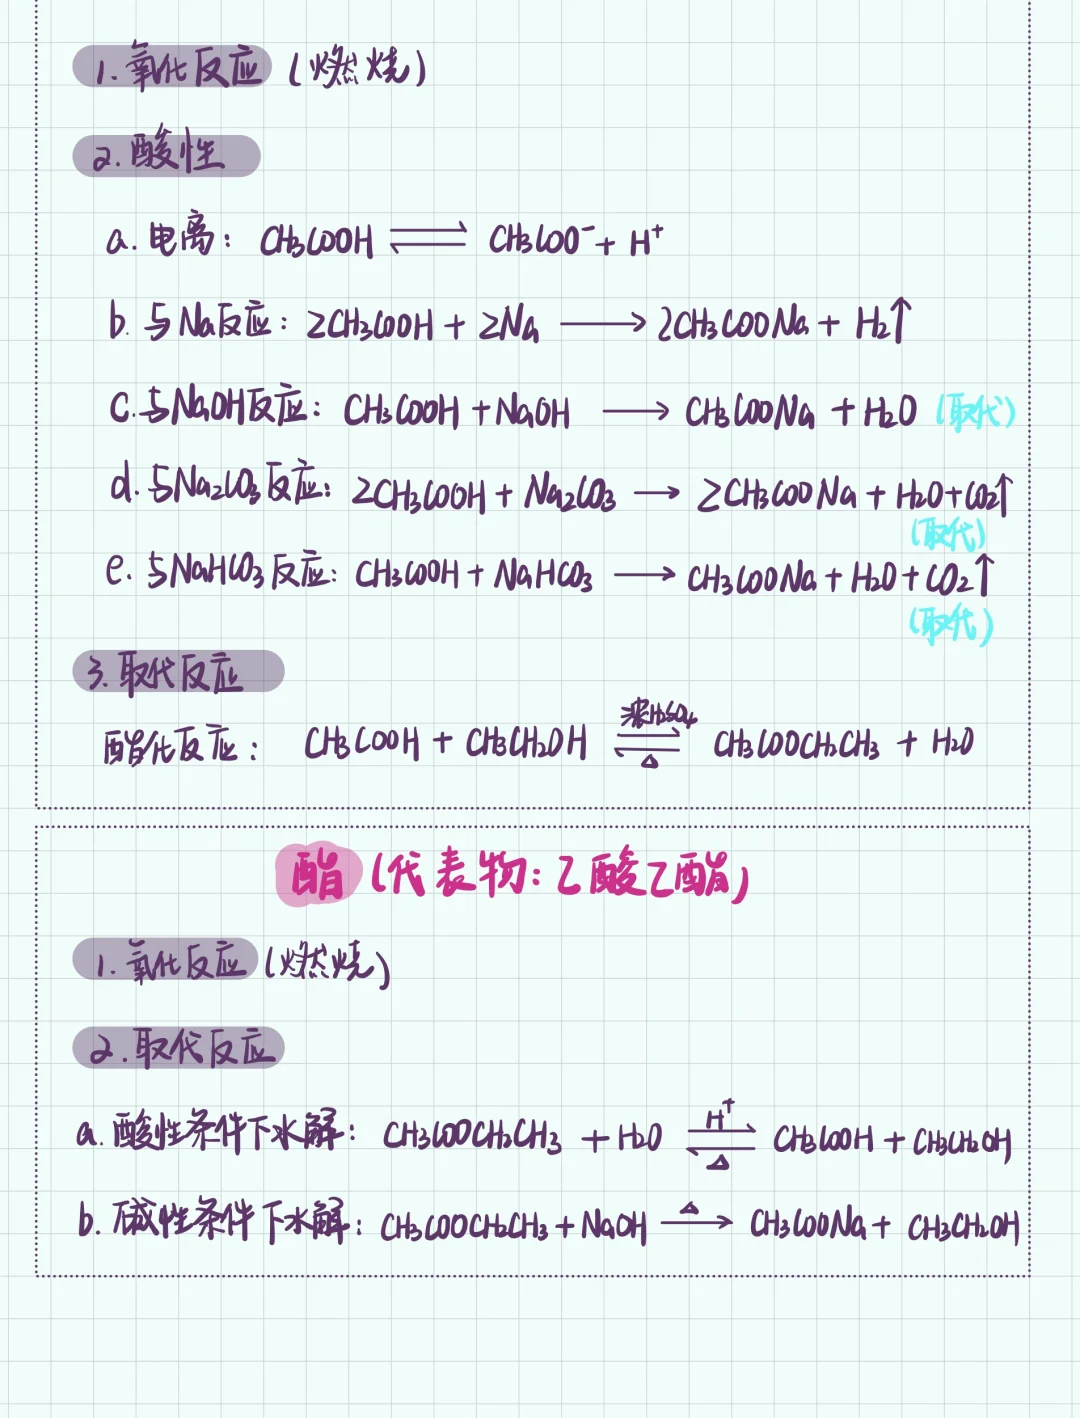 1. 氧化反应 (燃烧)
2. 酸性
a. 电离: CH₃COOH ⇌ CH₃COO⁻ + H⁺
b. 与Na反应: 2CH₃COOH + 2Na ⟶ 2CH₃COONa + H₂↑
c. 与NaOH反应: CH₃COOH + NaOH ⟶ CH₃COONa + H₂O (取代)
d. 与Na₂CO₃反应: 2CH₃COOH + Na₂CO₃ ⟶ 2CH₃COONa + H₂O + CO₂↑
(取代)
e. 与NaHCO₃反应: CH₃COOH + NaHCO₃ ⟶ CH₃COONa + H₂O + CO₂↑
(取代)
3. 取代反应
浓H₂SO₄
酯化反应: CH₃COOH + CH₃CH₂OH ⇌ CH₃COOCH₂CH₃ + H₂O
△
酯 (代表物: 乙酸乙酯)
1. 氧化反应 (燃烧)
2. 取代反应
H⁺
a. 酸性条件下水解: CH₃COOCH₂CH₃ + H₂O ⇌ CH₃COOH + CH₃CH₂OH
△
△
b. 碱性条件下水解: CH₃COOCH₂CH₃ + NaOH ⟶ CH₃COONa + CH₃CH₂OH